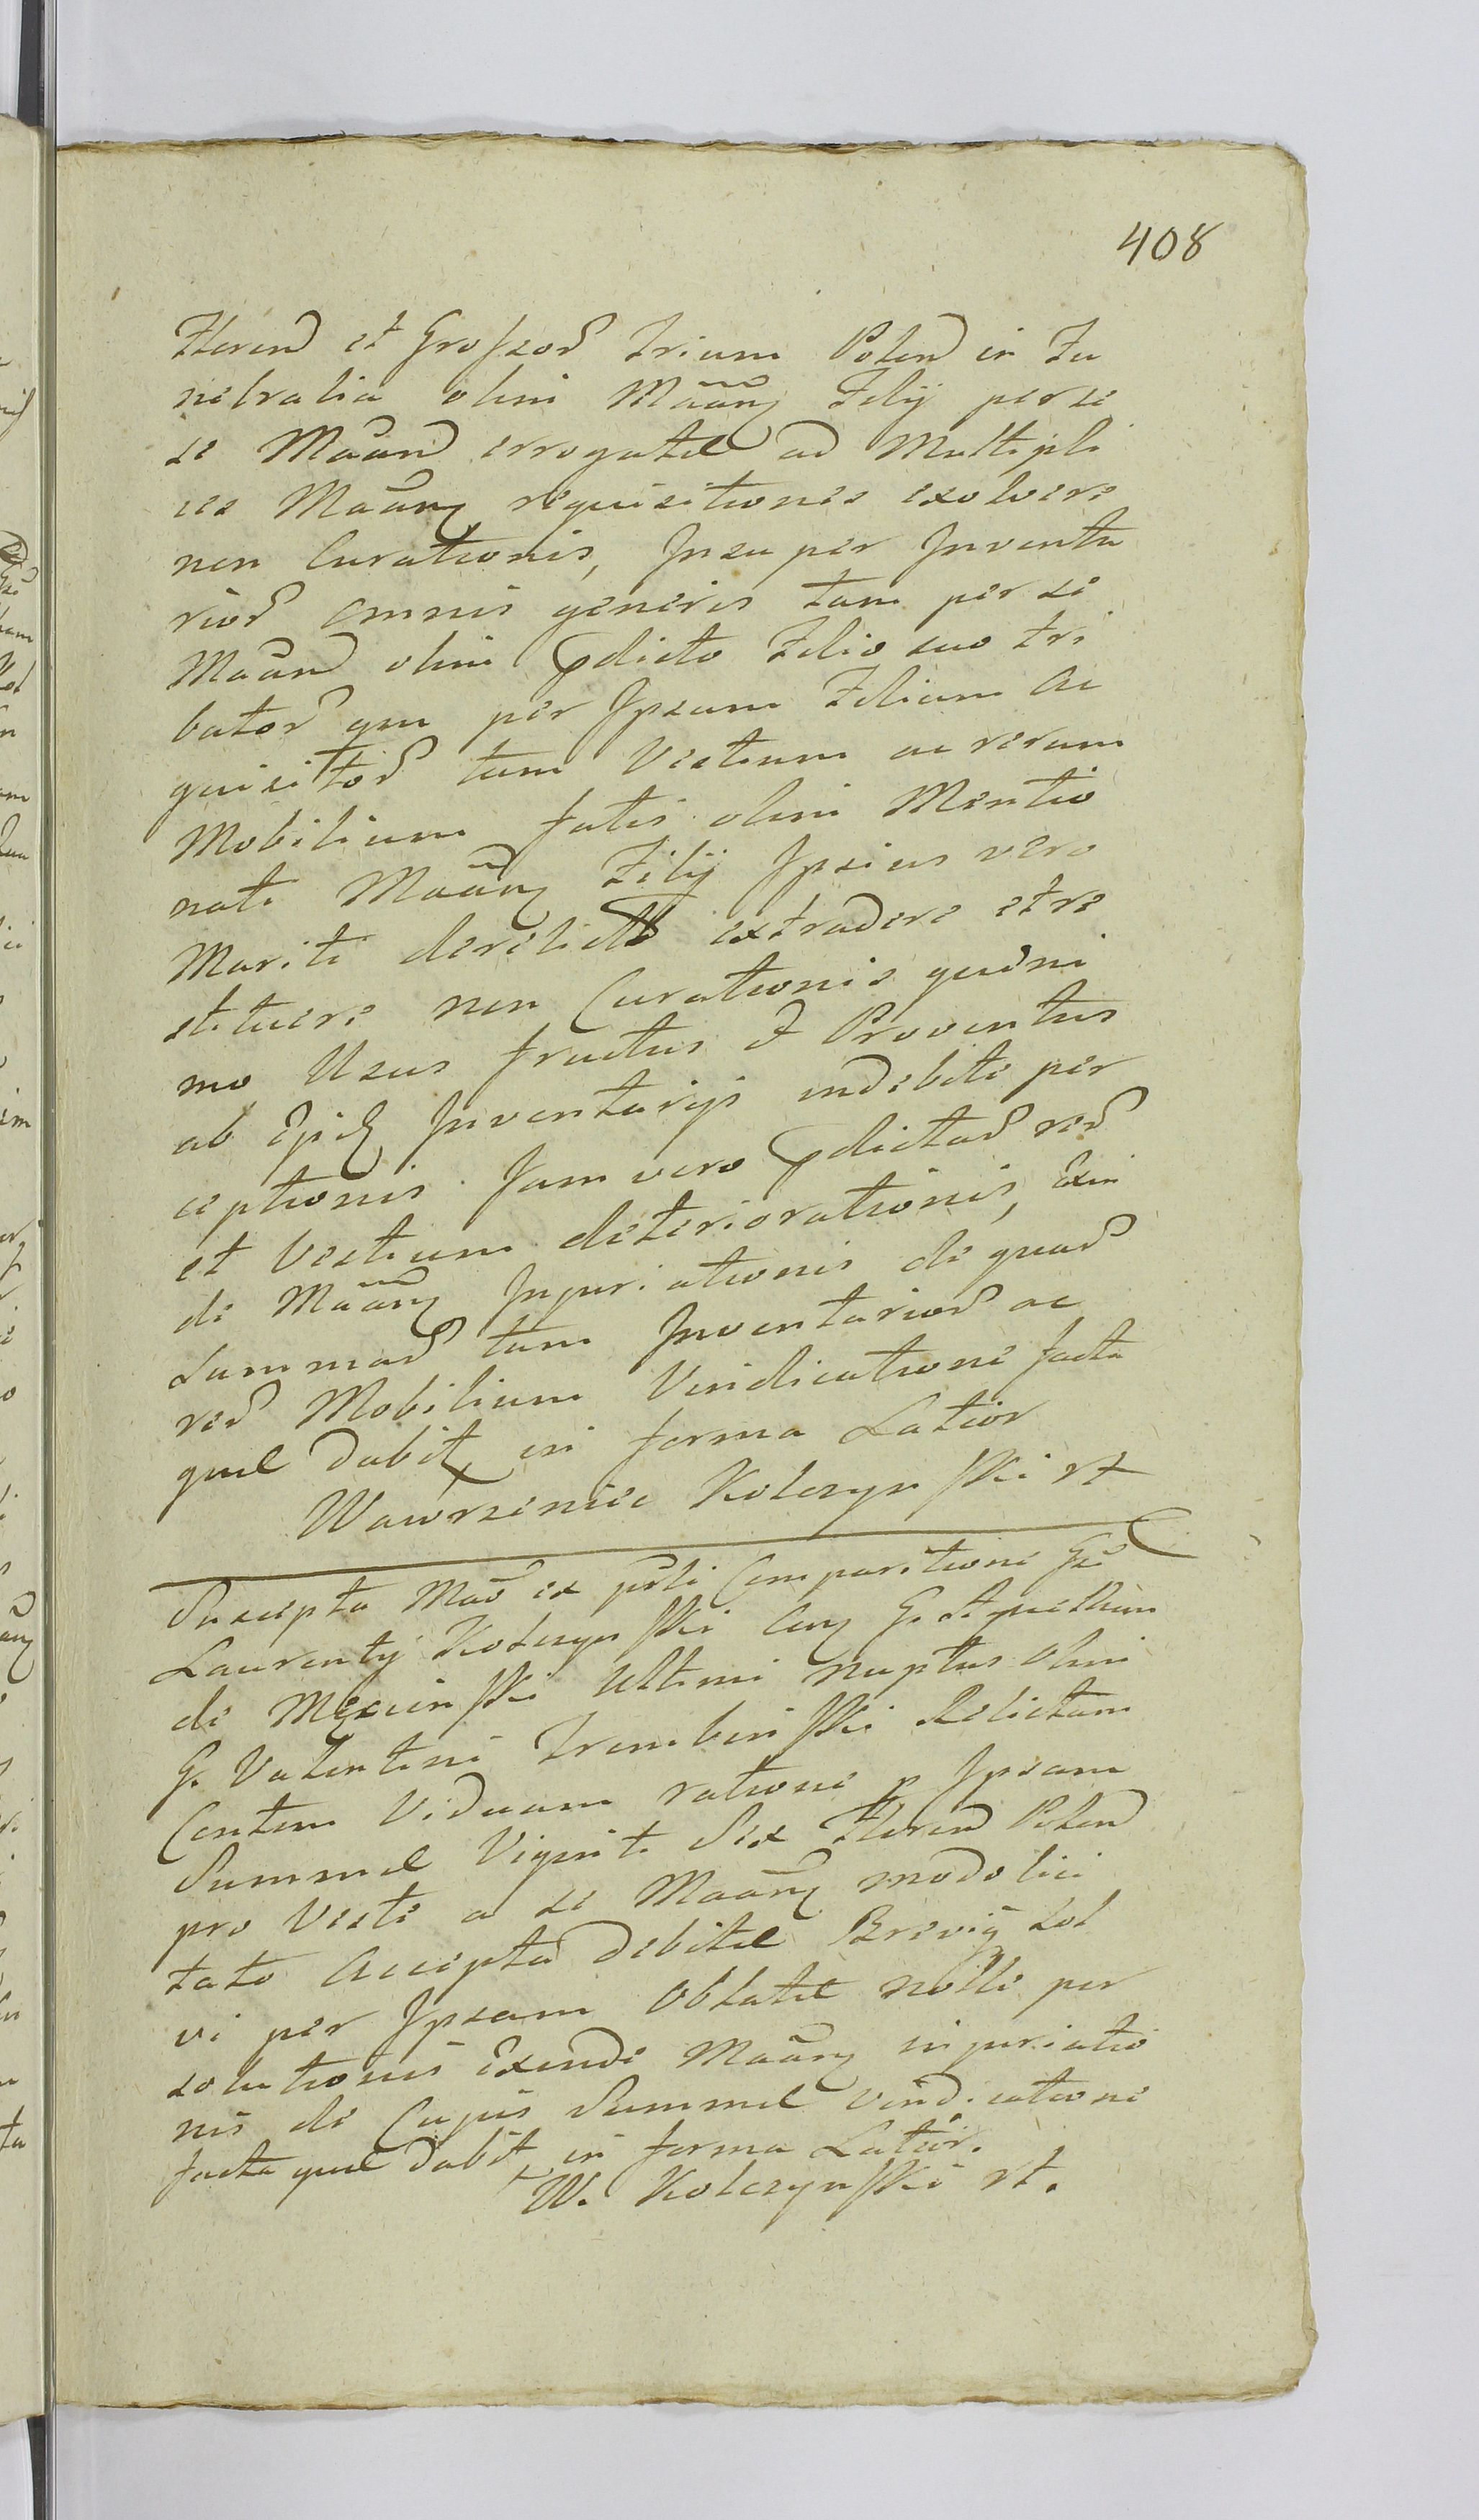 408
Floren et Grossor trium Polon in Fu
nebralia olim Mããnq Filij per se
se Mãan errogatæ ad Multipli
ces Mãanq requisitiones exolvere
non Curationis, Insuper Inventa
rior omnis generis tam per se
Mãan olim pdicto Filio suo tri
butor qm per Ipsum Filium Ac
quisitor tum Vestium ac rerum
Mobilium fatis olim Mentio
nati Mãanq Filij Ipsius vero
Mariti derelict extradere et re
stituere non Curationis quini
mo Usus fructus & Proventus
ab Ejusq Inventarijs indebite per
ceptionis Jam vero pdictar rer
et Vestium deteriorationis, Exin
de Mãanq Injuriationis de quar
Summar tum Inventarior ac
rer Mobilium Vindicatione facta
quæ dabit in forma Latior
Wawrzeniec Kolczynski rt
Suscepta Mão ex prsti Comparitione Gsi
Laurentij Kolczynski Conq G.
de Męcinski Ultimi nuptus olim
G. Valentini Trembinski Relictam
Contem Viduam ratione p Ipsam
Summæ Viginti Sex Floren Polon
pro Veste a se Mãanq modo lici
tato Accepta debitæ Brevig sol
vi per Ipsam Oblatæ nolle per
solutionis Exinde Mãanq injuriatio
nis de Cujus Summæ vindicatione
facta quæ dabit in forma Latior.
W. Kolczynski rt.